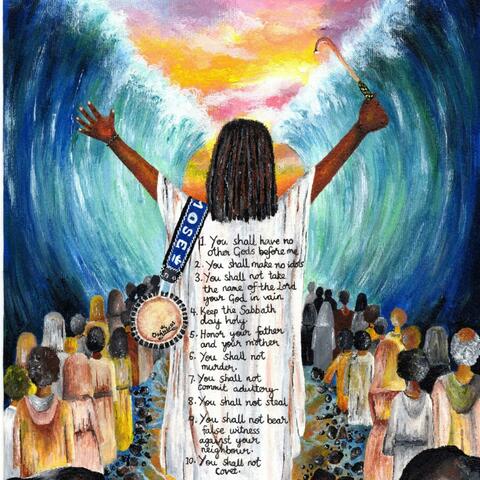 1. You shall have no
other Gods before me
2. You shall make no idols
3. You shall not take
the name of the Lord
your God in vain
4. Keep the Sabbath
day holy
5. Honor your father
and your mother
6. You shall not
murder.
7. You shall not
commit adultory
8. You shall not steal
9. You shall not bear
false witness
against your
neighbour.
10. You shall not
covet.